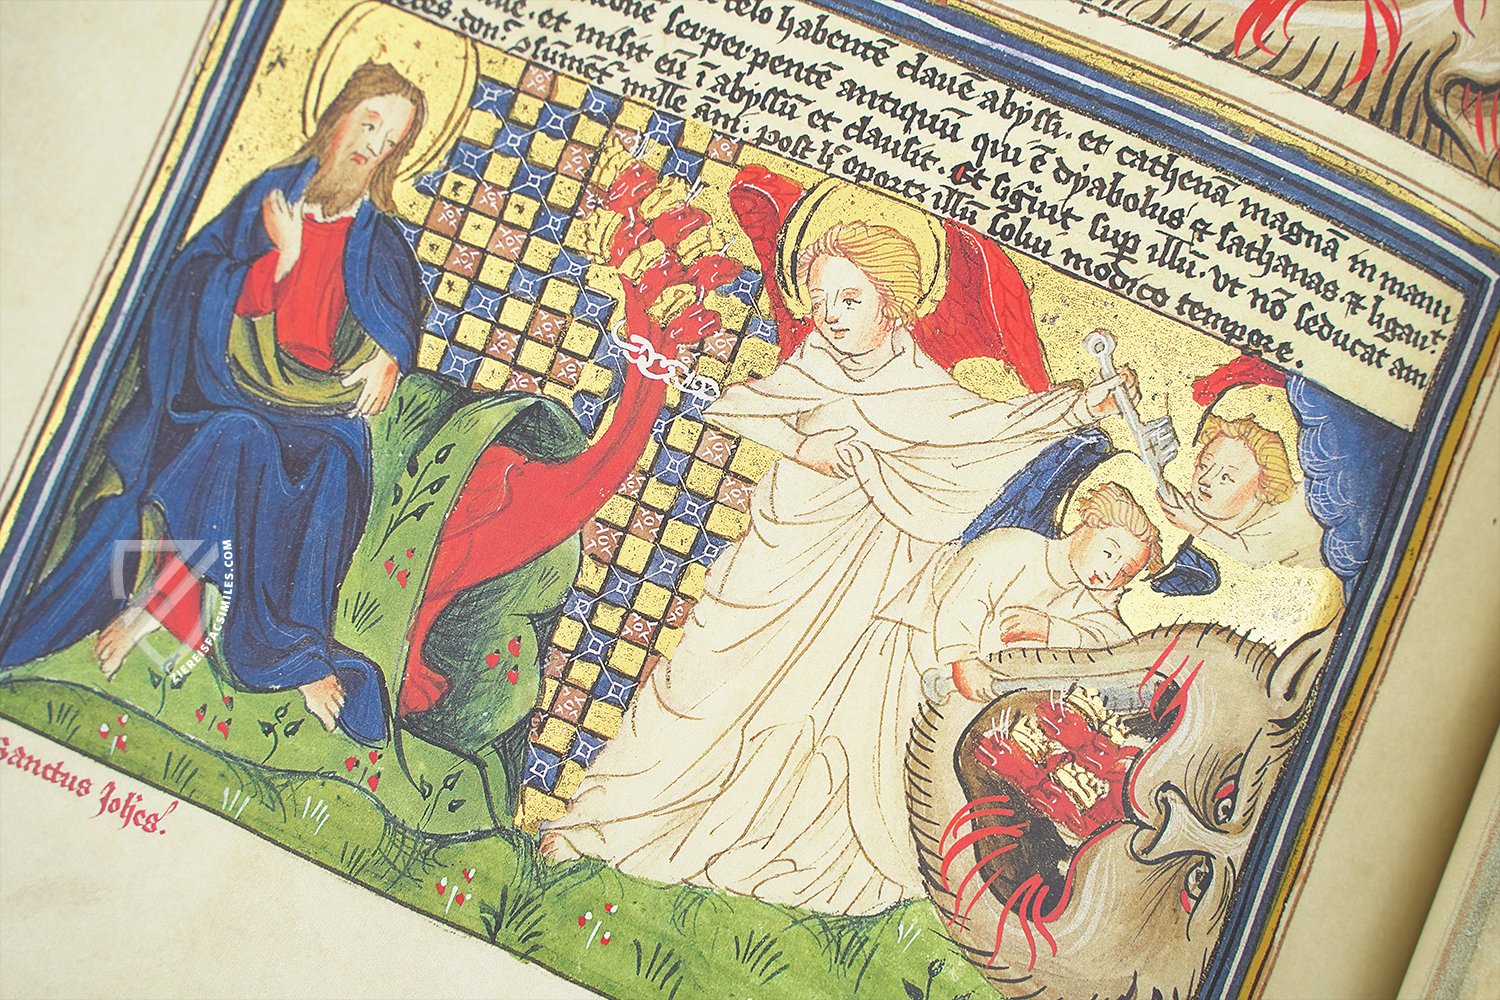 celo habentē clavē abyssi. et cathenā magnā in manu
serpentē antiquū qui ē dyabolus et sathanas. et ligaut.
et misit eū ī abyssū et clausit. Et sigūit sup illū. vt nō seducat am
mille am̄. post h̄ oportz illū solui modico tempore.
Sanctus Johēs.
ZIEREISFACSIMILES.COM